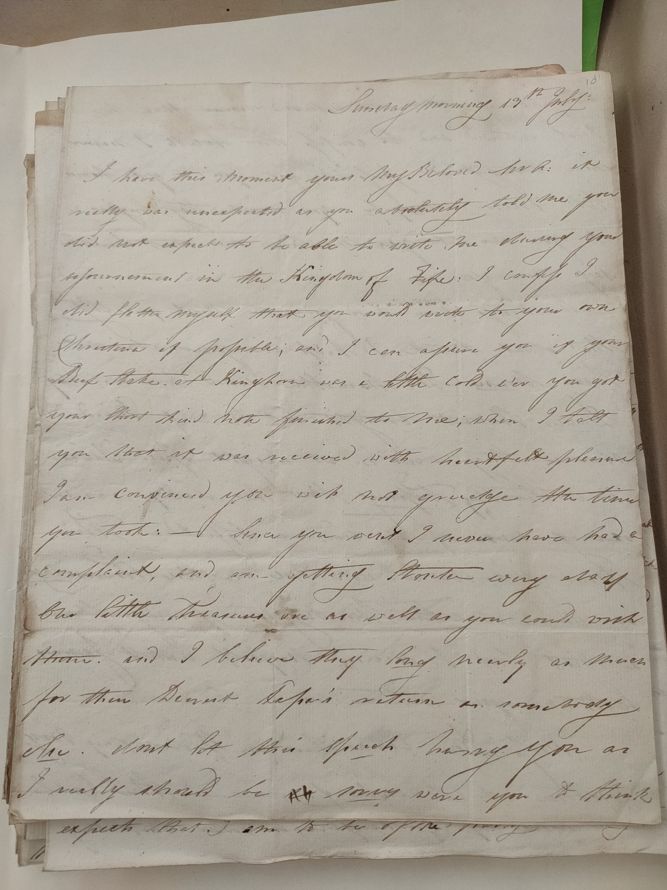 10
Sunday morning 13th July:
I have this moment yours My Beloved Mr A: it
really was unexpected as you absolutely told me you
did not expect to be able to write me during your
in the Kingdom of Fife: I confess I
did flatter myself that you would write to your own
Christina if possible; and I can assure you if your
Beef Stake at Kinghorn was a little cold e'er you got
your short kind note finished to me; when I tell
you that it was received with heartfelt pleasure
I am convinced you will not grudge the time
you took: — Since you went I never have had a
complaint, and am getting Stouter every day
Our little Treasures are as well as you could wish
them. and I believe they long nearly as much
for their Dearest Papa's return as somebody
else. dont let this speech hurry you as
I really should be sorry were you to think
expect that I am to be of the party